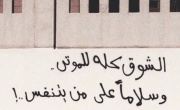 الشوق كله للموتى.
وسلاماً على من يتنفس..!